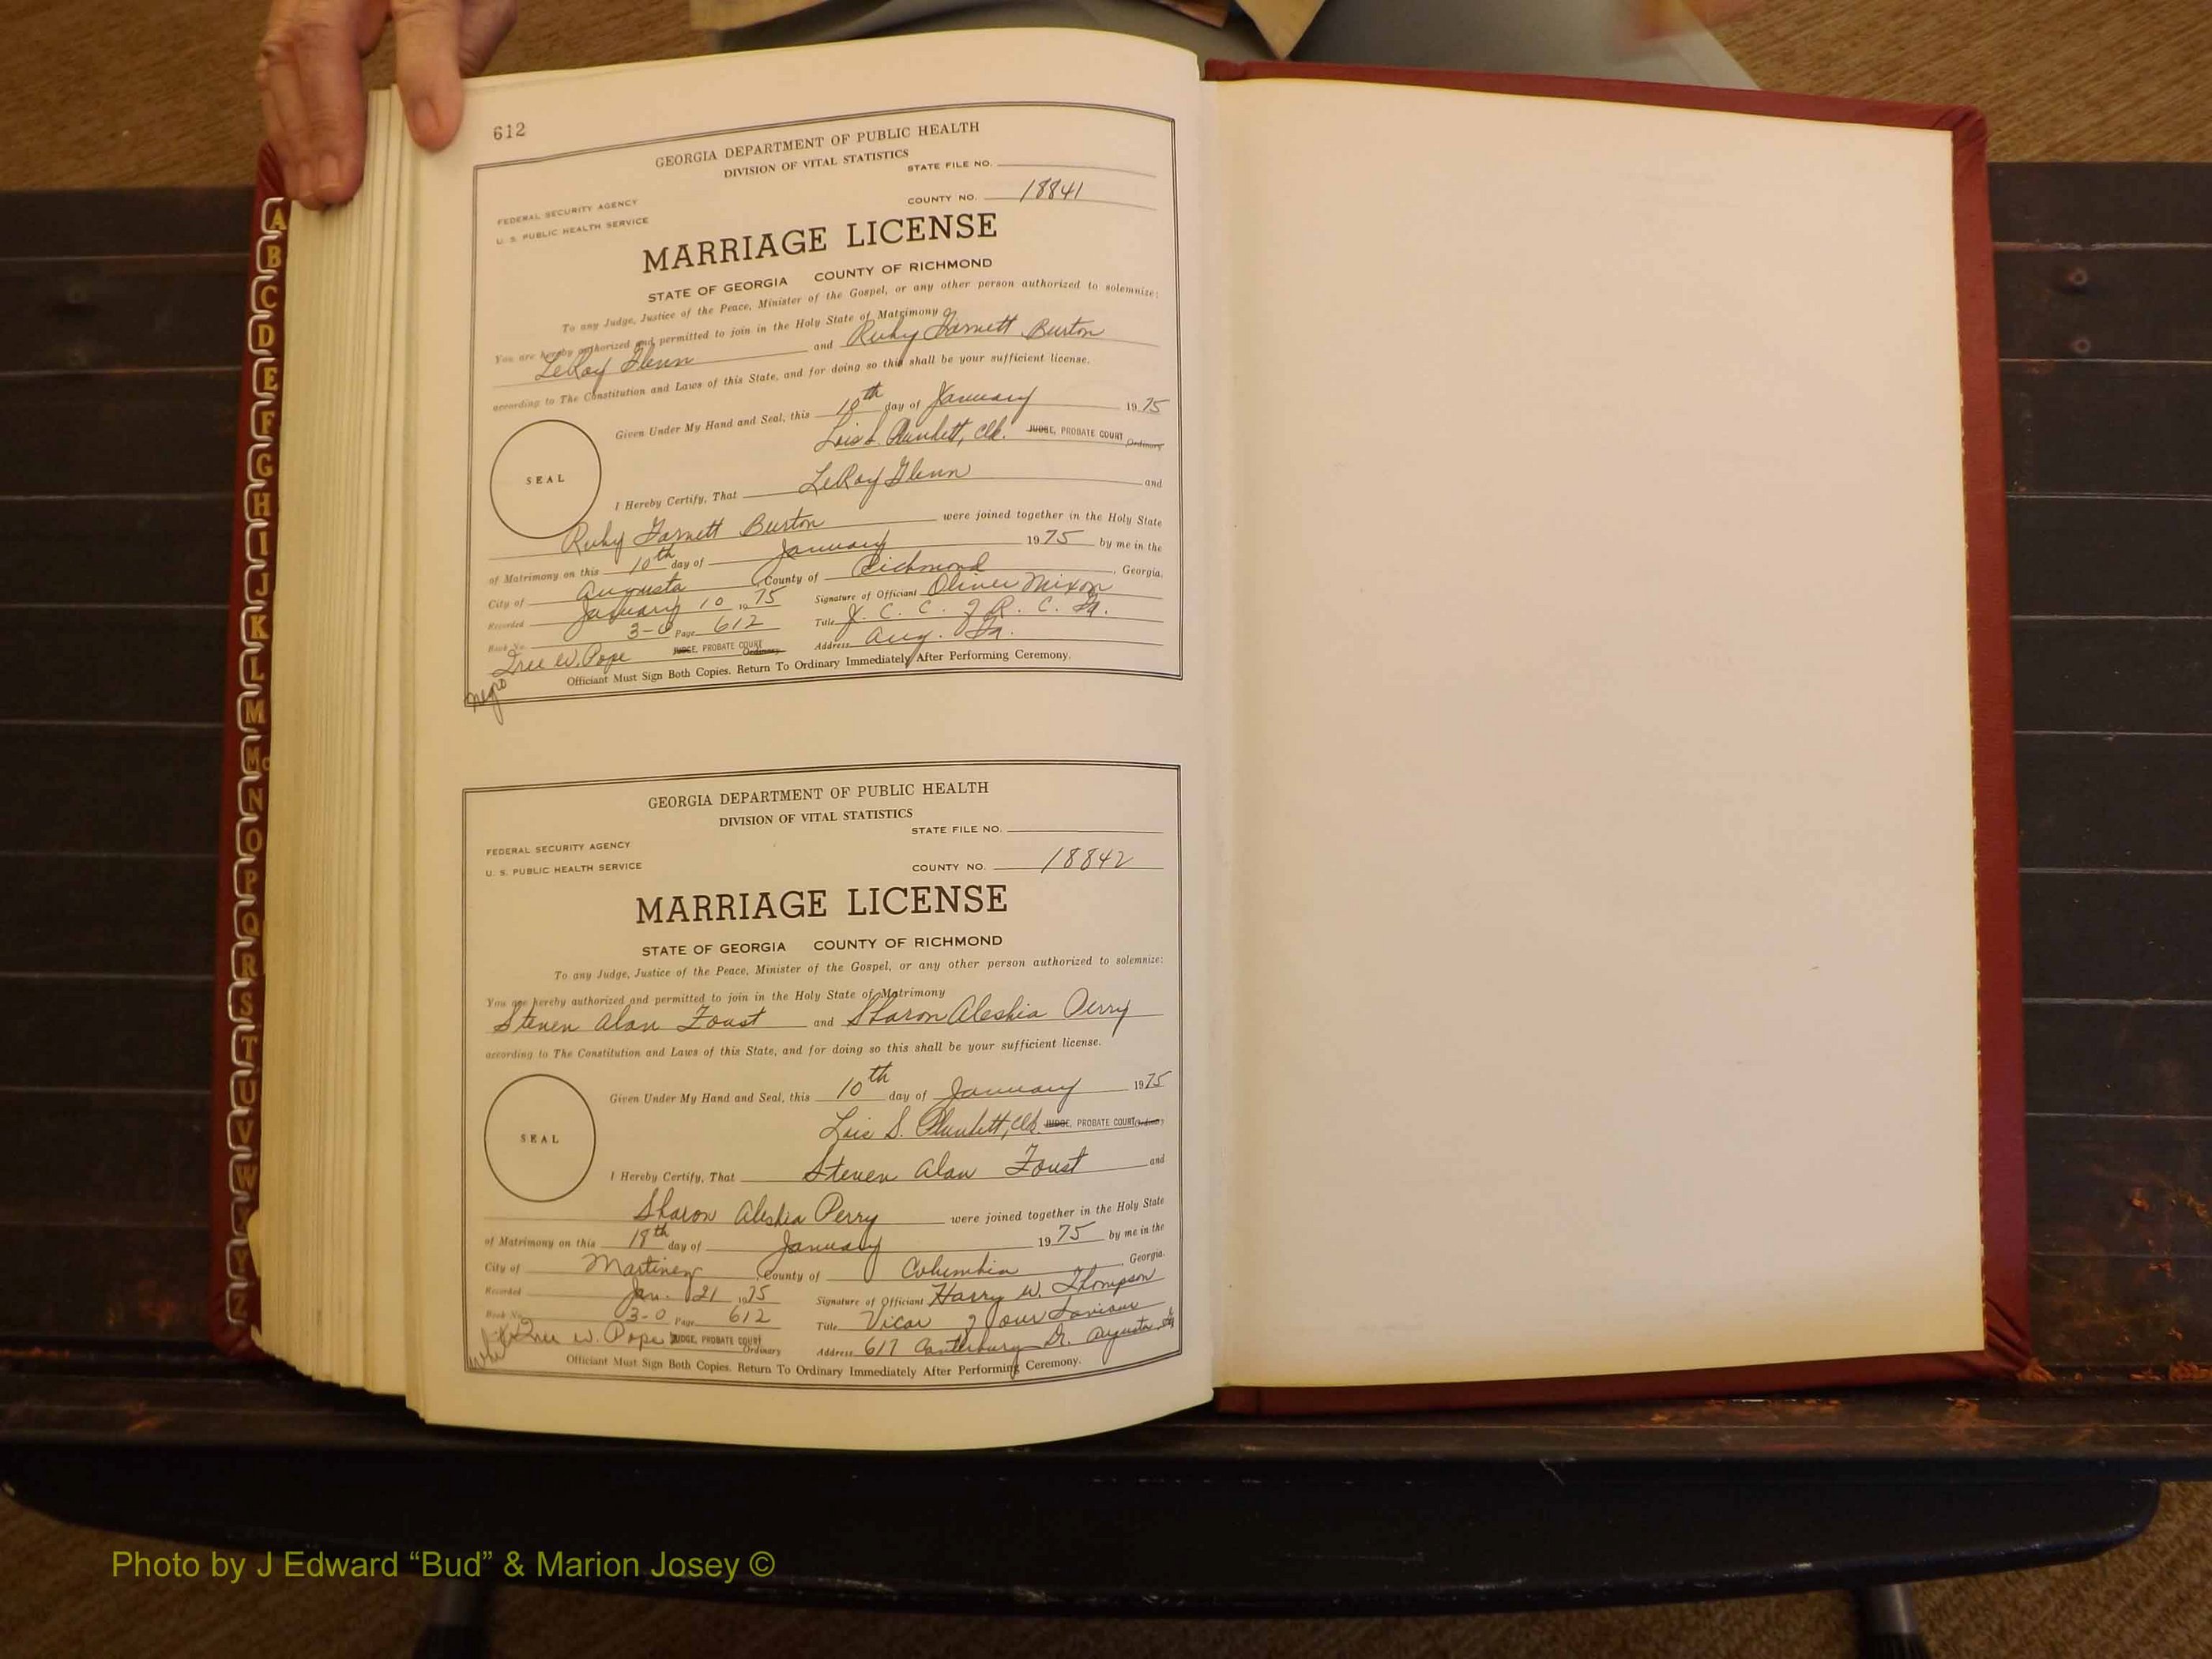 612
GEORGIA DEPARTMENT OF PUBLIC HEALTH
DIVISION OF VITAL STATISTICS
STATE FILE NO.
FEDERAL SECURITY AGENCY
COUNTY NO. 18841
U. S. PUBLIC HEALTH SERVICE
MARRIAGE LICENSE
STATE OF GEORGIA COUNTY OF RICHMOND
To any Judge, Justice of the Peace, Minister of the Gospel, or any other person authorized to solemnize:
You are hereby authorized and permitted to join in the Holy State of Matrimony
LeRoy Glenn and Ruby Garnett Burton
according to The Constitution and Laws of this State, and for doing so this shall be your sufficient license.
Given Under My Hand and Seal, this 10th day of January 1975
Lois S. Plunkett, Clk. JUDGE, PROBATE COURT Ordinary
SEAL
I Hereby Certify, That LeRoy Glenn and
Ruby Garnett Burton were joined together in the Holy State
of Matrimony on this 10th day of January 1975 by me in the
City of Augusta, County of Richmond, Georgia.
Recorded January 10 1975 Signature of Officiant Oliver Mixon
Book No. 3-O Page 612 Title J. C. C. of R. C. Ga.
W. Pope JUDGE, PROBATE COURT Ordinary Address Aug. Ga.
Officiant Must Sign Both Copies. Return To Ordinary Immediately After Performing Ceremony.
Negro
GEORGIA DEPARTMENT OF PUBLIC HEALTH
DIVISION OF VITAL STATISTICS
STATE FILE NO.
FEDERAL SECURITY AGENCY
COUNTY NO. 18842
U. S. PUBLIC HEALTH SERVICE
MARRIAGE LICENSE
STATE OF GEORGIA COUNTY OF RICHMOND
To any Judge, Justice of the Peace, Minister of the Gospel, or any other person authorized to solemnize:
You are hereby authorized and permitted to join in the Holy State of Matrimony
Steven Alan Foust and Sharon Aleshia Perry
according to The Constitution and Laws of this State, and for doing so this shall be your sufficient license.
Given Under My Hand and Seal, this 10th day of January 1975
Lois S. Plunkett, Clk. JUDGE, PROBATE COURT Ordinary
SEAL
I Hereby Certify, That Steven Alan Foust and
Sharon Aleshia Perry were joined together in the Holy State
of Matrimony on this 19th day of January 1975 by me in the
City of Martinez, County of Columbia, Georgia.
Recorded Jan. 21 1975 Signature of Officiant Harry W. Thompson
Book No. 3-O Page 612 Title Vicar of Our Saviour
W. Pope JUDGE, PROBATE COURT Ordinary Address 617 Canterbury Dr. Augusta Ga
White
Officiant Must Sign Both Copies. Return To Ordinary Immediately After Performing Ceremony.
A
B
C
D
E
F
G
H
I
J
K
L
M
Mc
N
O
P
Q
R
S
T
U
V
W
X
Y
Z
Photo by J Edward “Bud” & Marion Josey ©